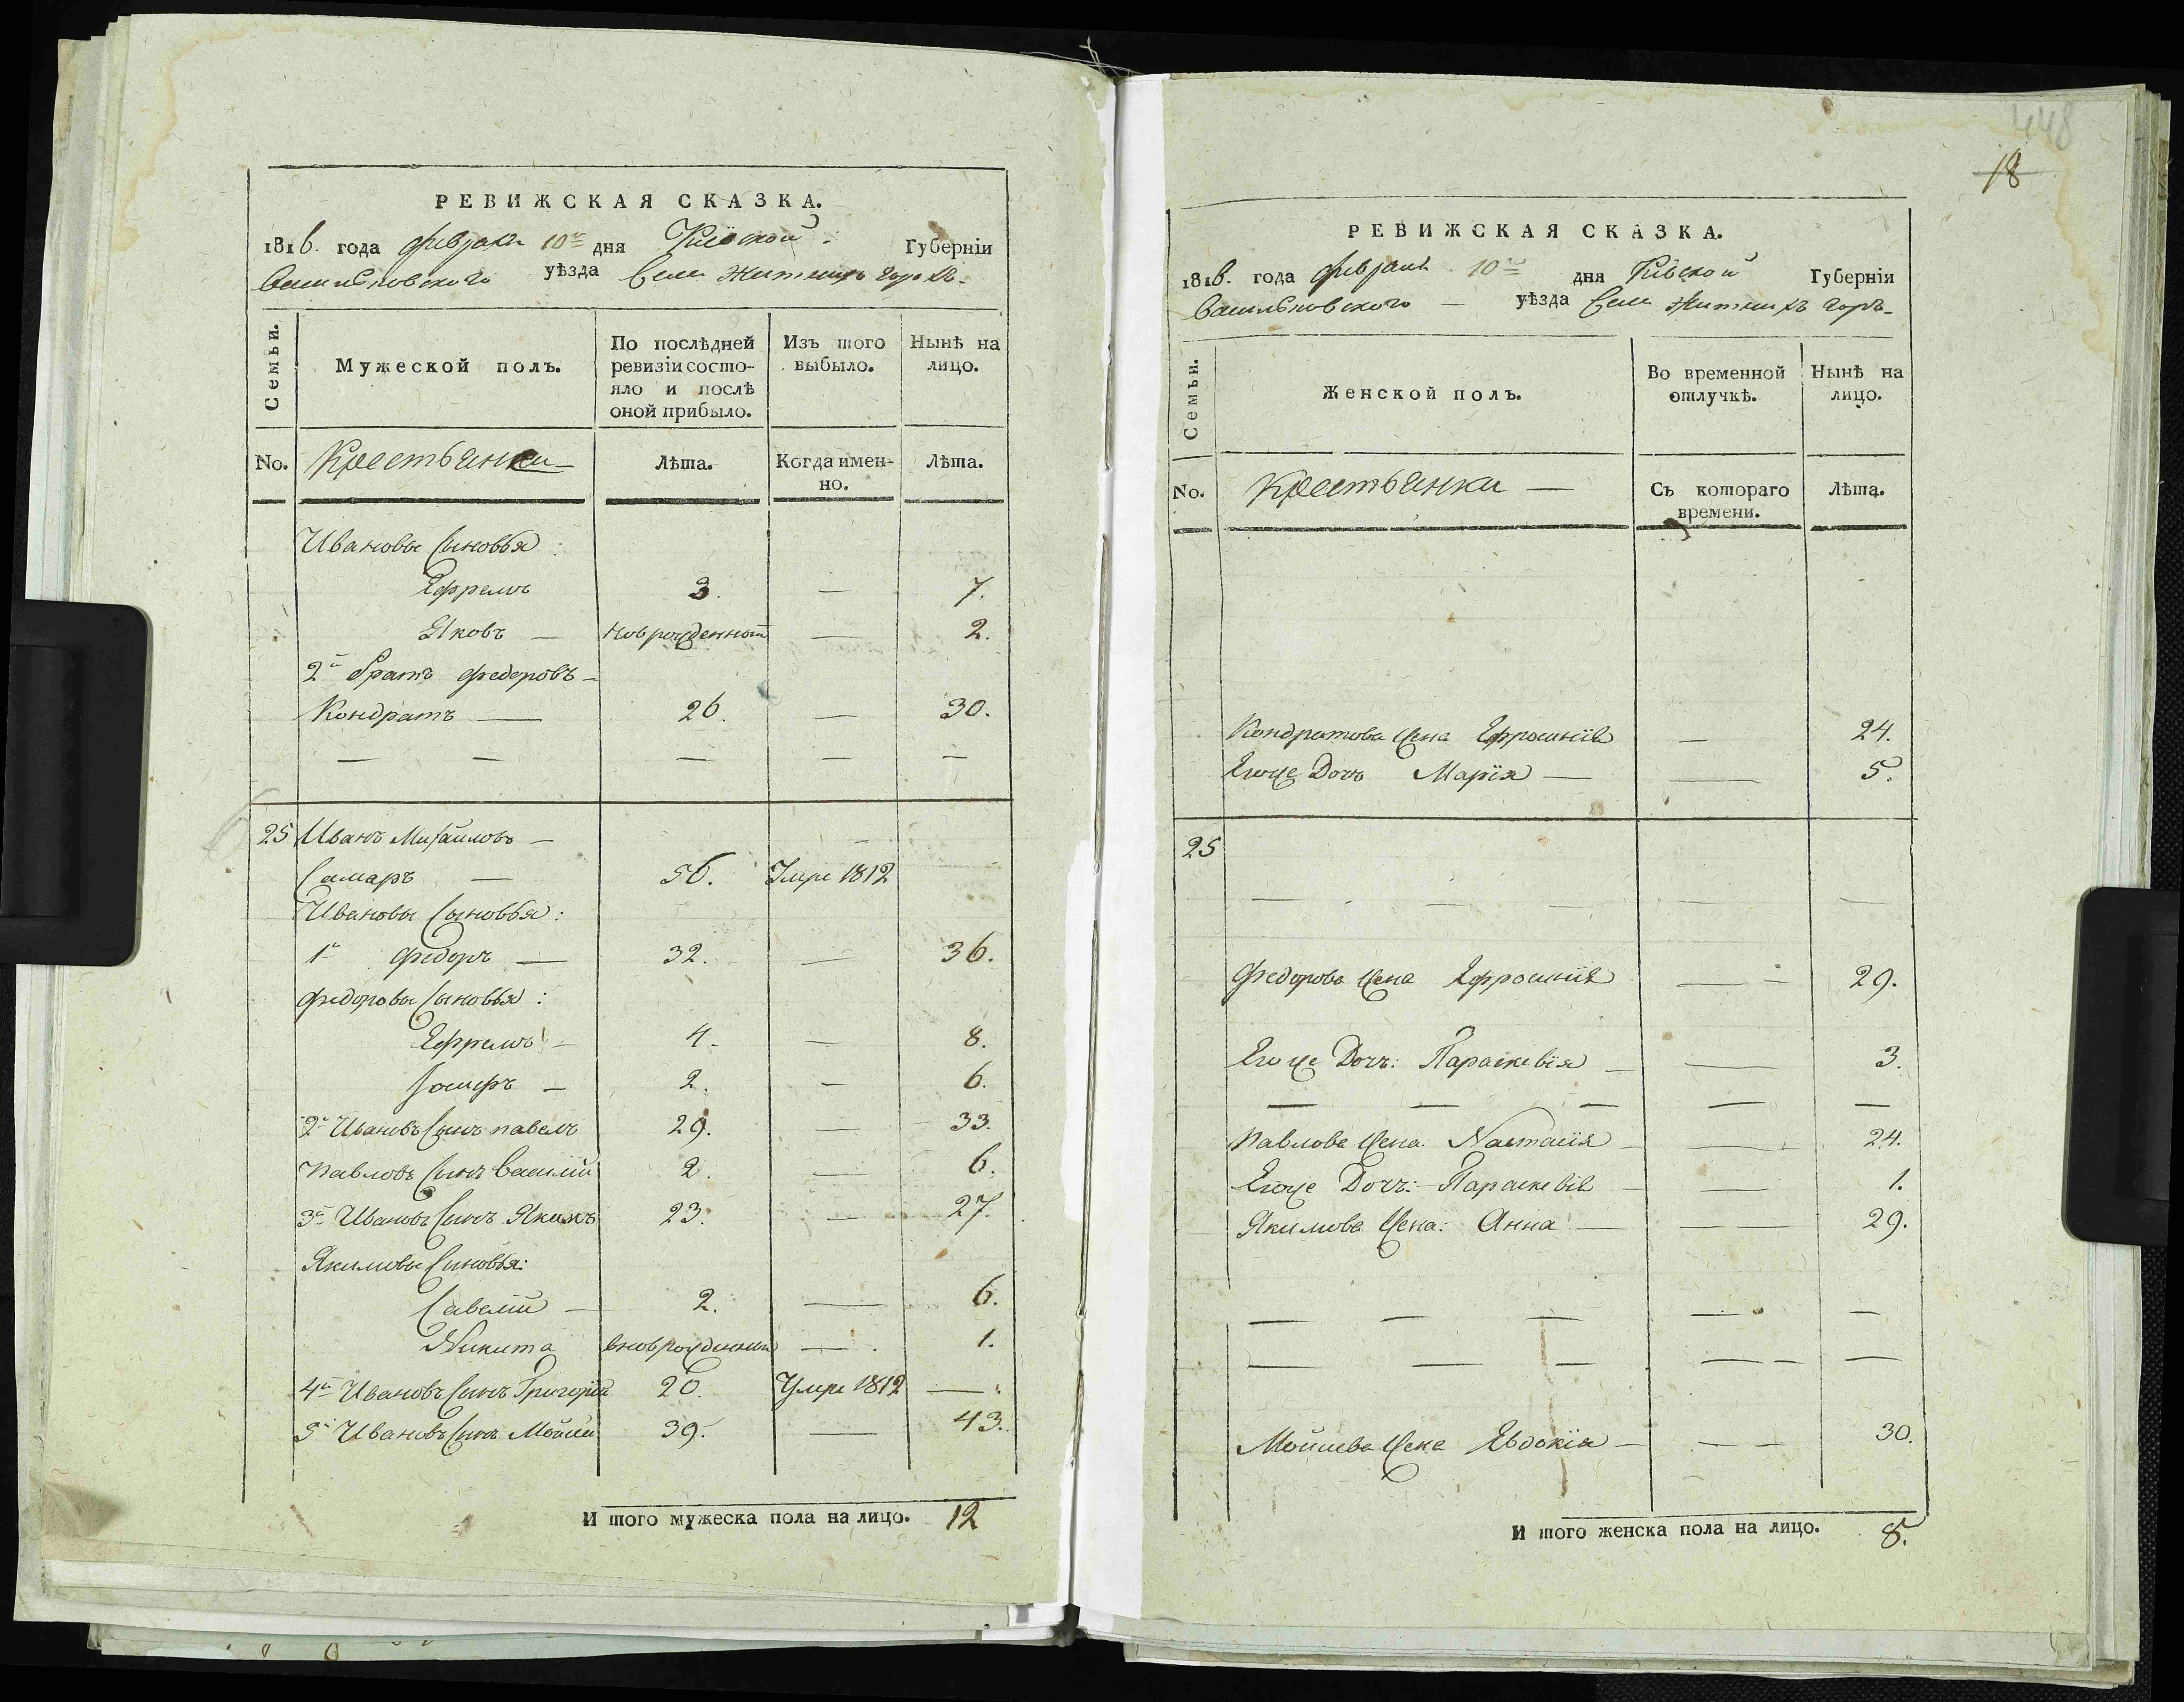 РЕВИЖСКАЯ СКАЗКА.
1816. года февраля 10го дня Кіевской Губерніи
Васильковскаго уѣзда Села Житнихъ горъ.
Семьи.
Мужеской полъ.
По послѣдней ревизіи состояло и послѣ оной прибыло.
Изъ того выбыло.
Нынѣ на лицо.
No.
Крестьянки
Лѣта.
Когда именно.
Лѣта.
Ивановы Сыновья:
Ефремъ 3. — 7.
Яковъ — новрожденный — 2.
2й братъ Федоровъ —
Кондратъ — 26. — 30.
— — — — —
25 Иванъ Михайловъ —
Самаръ — 56. Умре 1812
Ивановы Сыновья:
1й Федоръ — 32. — 36.
Федоровы Сыновья:
Ефремъ — 4. — 8.
Іосифъ — 2. — 6.
2й Ивановъ Сынъ павелъ 29. — 33.
Павловъ Сынъ Василій 2. — 6.
3й Ивановъ Сынъ Якимъ 23. — 27.
Якимовы Сыновья:
Савелій — 2. — 6.
Никита вноврожденный — 1.
4й Ивановъ Сынъ Григорій 20. Умре 1812 —
5й Ивановъ Сынъ Мойсей 39. — 43.
И того мужеска пола на лицо. 12
448
18
РЕВИЖСКАЯ СКАЗКА.
1816. года февраля 10го дня Кіевской Губерніи
Васильковскаго — уѣзда Села Житнихъ горъ.
Семьи.
Женской полъ.
Во временной отлучкѣ.
Нынѣ на лицо.
No.
Крестьянки —
Съ котораго времени.
Лѣта.
Кондратова Жена Ефросинія — 24.
Егоже Дочъ Марія — — 5.
25
— — — — —
Федорова Жена Ефросинія — — 29.
Егоже Дочъ: Параскевія — — 3.
— — — — —
Павлова Жена: Настасія — — 24.
Егоже Дочъ: Параскевія — — 1.
Якимова Жена: Анна — — — 29.
— — — — —
— — — — —
Мойсеева Жена Евдокія — — — 30.
И того женска пола на лицо. 8.